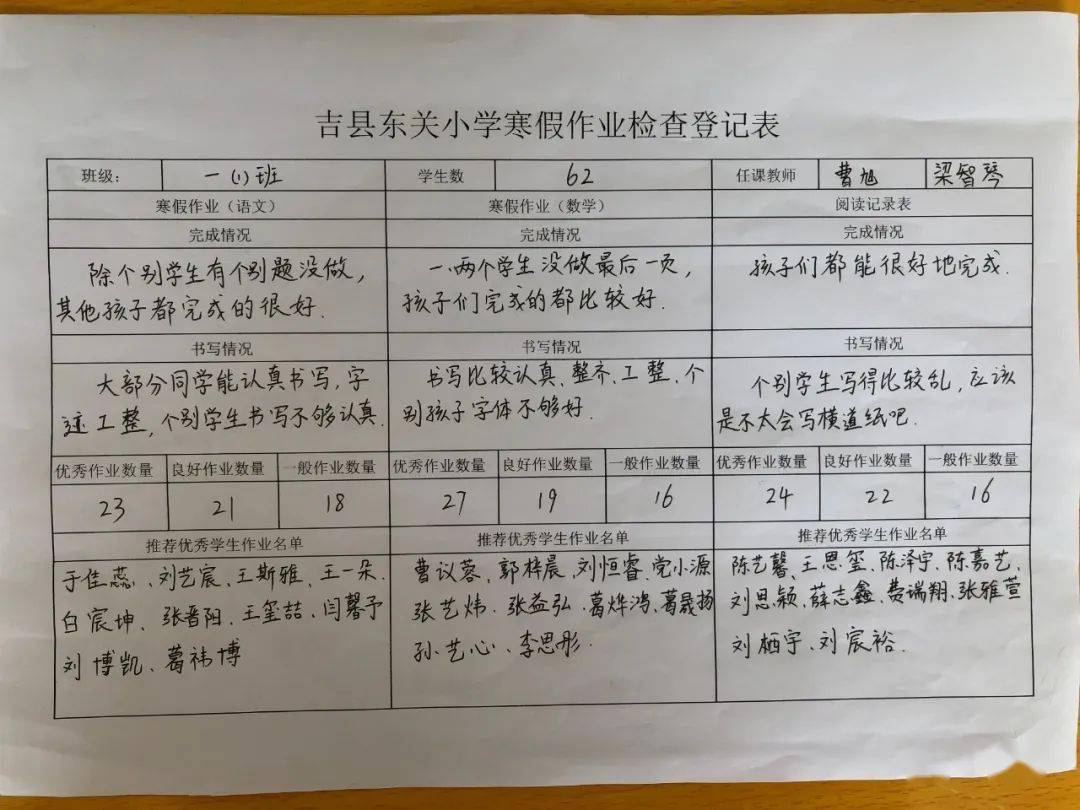 吉县东关小学寒假作业检查登记表
班级: 一(1)班 学生数 62 任课教师 曹旭 梁智琴
寒假作业（语文） 寒假作业（数学） 阅读记录表
完成情况 完成情况 完成情况
除个别学生有个别题没做，
其他孩子都完成的很好.
一、两个学生没做最后一页，
孩子们完成的都比较好.
孩子们都能很好地完成.
书写情况 书写情况 书写情况
大部分同学能认真书写，字
迹工整，个别学生书写不够认真.
书写比较认真、整齐、工整、个
别孩子字体不够好.
个别学生写得比较乱，应该
是不太会写横道纸吧.
优秀作业数量 良好作业数量 一般作业数量 优秀作业数量 良好作业数量 一般作业数量 优秀作业数量 良好作业数量 一般作业数量
23 21 18 27 19 16 24 22 16
推荐优秀学生作业名单 推荐优秀学生作业名单 推荐优秀学生作业名单
于佳蕊、刘艺宸、王斯雅、王一朵.
白宸坤、张晋阳、王玺喆、闫馨予
刘博凯、葛祎博
曹议蓉、郭梓晨、刘恒睿、党小源
张艺炜、张益弘、葛烨鸿、葛晟扬
孙艺心、李思彤.
陈艺馨、王思玺、陈泽宇、陈嘉艺、
刘思颖、薛志鑫、费瑞翔、张雅萱
刘栖宇、刘宸裕.